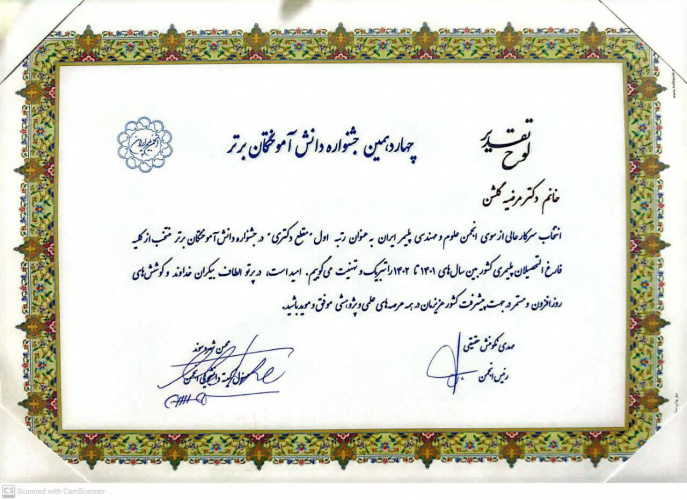 لوح تقدیر
چهاردهمین جشنواره دانش آموختگان برتر
خانم دکتر مرضیه گلشن
انتخاب سرکار عالی از سوی انجمن علوم و مهندسی پلیمر ایران به عنوان رتبه اول "مقطع دکتری" در جشنواره دانش آموختگان برتر منتخب از کلیه
فارغ التحصیلان پلیمری کشور بین سال های ۱۴۰۱ تا ۱۴۰۲ را تبریک و تهنیت می گوییم. امید است، در پرتو الطاف بیکران خداوند و کوشش های
روزافزون و مستمر در جهت پیشرفت کشور عزیزمان در همه عرصه های علمی و پژوهشی موفق و موید باشید.
مهدی نکومنش حقیقی
رئیس انجمن
محسن شهروسوند
مسئول کمیته دانشجویی انجمن
CS Scanned with CamScanner